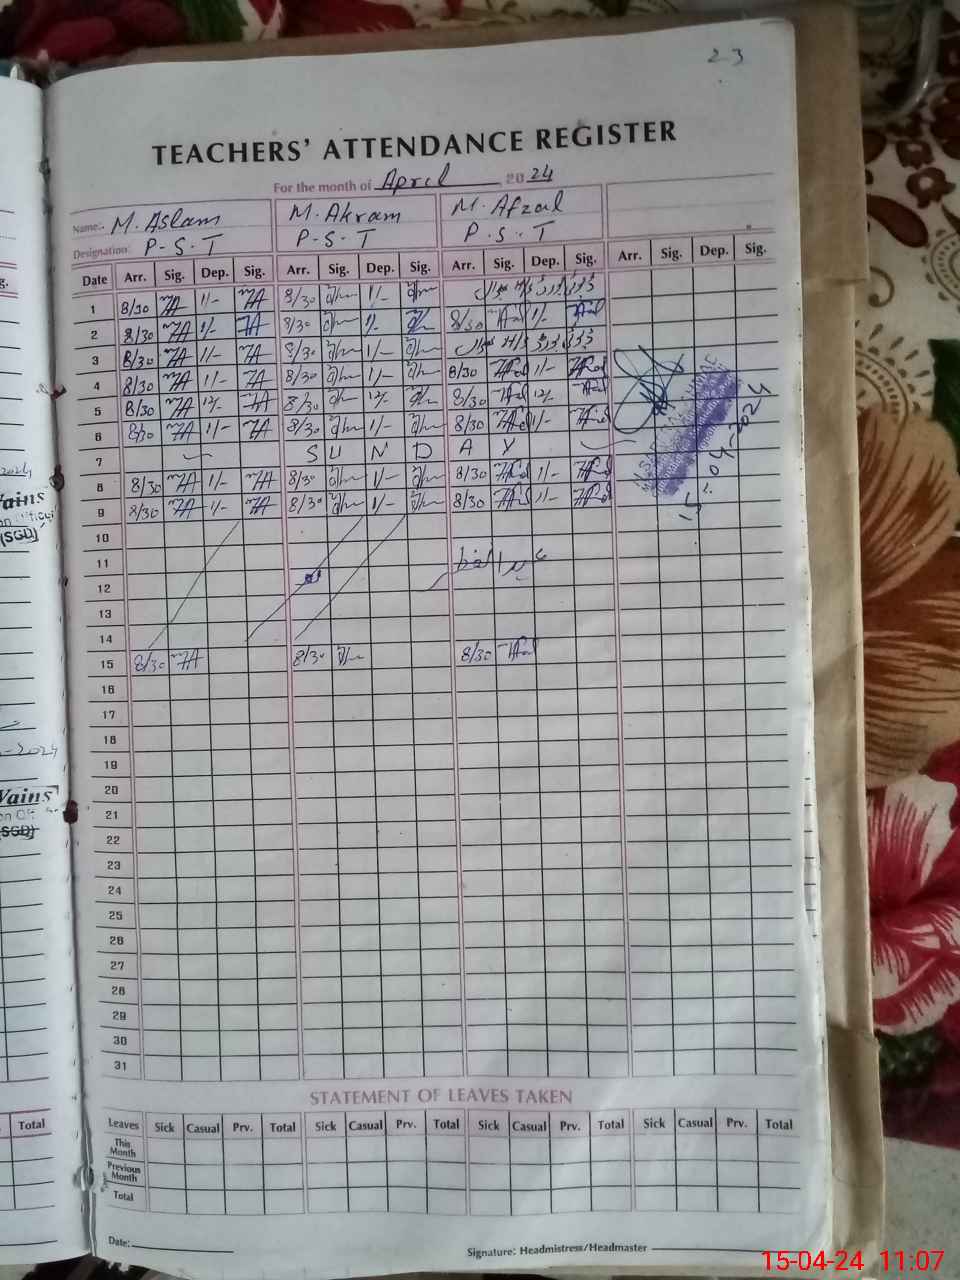 23
TEACHERS' ATTENDANCE REGISTER
For the month of April 2024
Name:- M. Aslam M. Akram M. Afzal
Designation: P-S-T P-S-T P-S-T
Date Arr. Sig. Dep. Sig. Arr. Sig. Dep. Sig. Arr. Sig. Dep. Sig. Arr. Sig. Dep. Sig.
1 8/30 1/- 8/30 1/-
2 8/30 1/- 8/30 1/- 8/30 1/-
3 8/30 1/- 8/30 1/-
4 8/30 1/- 8/30 1/- 8/30 1/-
5 8/30 12/- 8/30 12/- 8/30 12/-
6 8/30 1/- 8/30 1/- 8/30 1/-
7 S U N D A Y
8 8/30 1/- 8/30 1/- 8/30 1/-
9 8/30 1/- 8/30 1/- 8/30 1/-
10
11 عید الفطر
12
13
14
15 8/30 8/30 8/30
16
17
18
19
20
21
22
23
24
25
26
27
28
29
30
31
15-04-2024
STATEMENT OF LEAVES TAKEN
Leaves Sick Casual Prv. Total Sick Casual Prv. Total Sick Casual Prv. Total Sick Casual Prv. Total
This Month
Previous Month
Total
Date:
Signature: Headmistress/Headmaster
Total
-2024
Wains
(SGD)
15-04-24 11:07